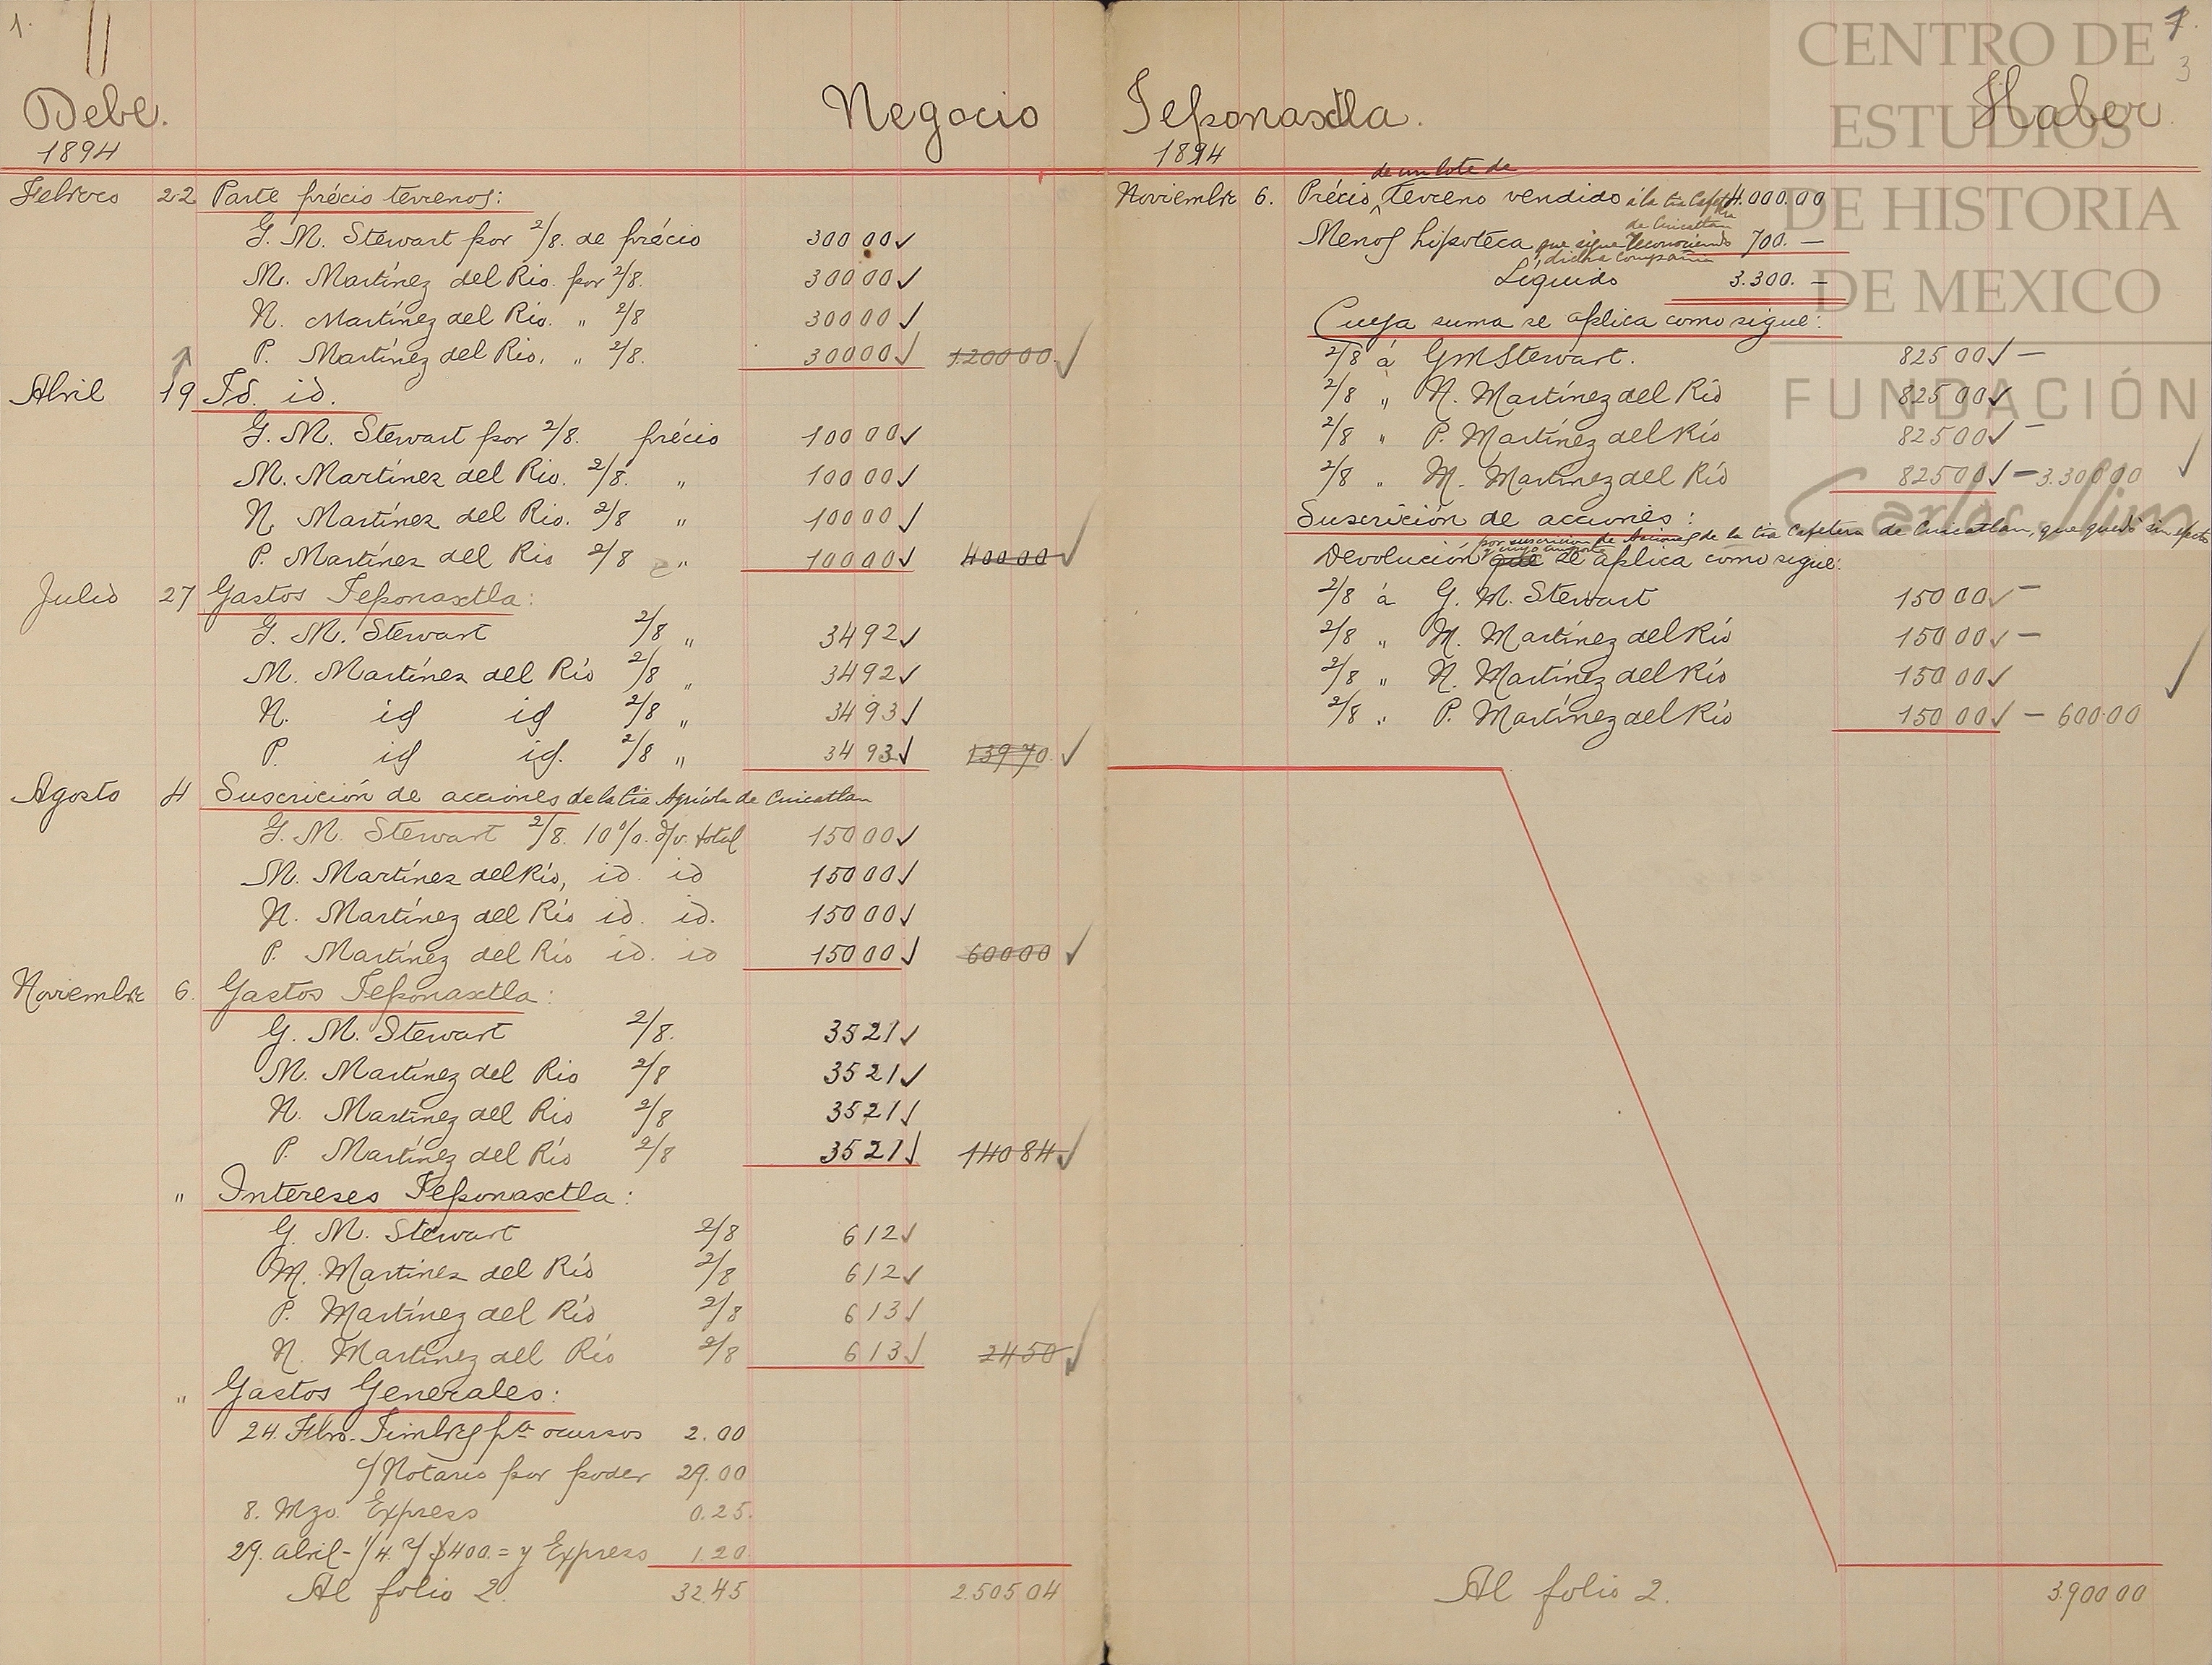 1.
Debe. Negocio
1894
Febrero 22 Parte précio terrenos:
G. M. Stewart por 2/8. de précio 300 00 ✓
M. Martínez del Rio. por 2/8. 300 00 ✓
N. Martínez del Rio. " 2/8 300 00 ✓
P. Martínez del Rio. " 2/8. 300 00 ✓ 1.200 00 ✓
Abril 19 Id. id.
G. M. Stewart por 2/8. précio 100 00 ✓
M. Martínez del Rio. 2/8. " 100 00 ✓
N. Martínez del Rio. 2/8 " 100 00 ✓
P. Martínez del Rio 2/8 " 100 00 ✓ 400 00 ✓
Julio 27 Gastos Teponaxtla:
G. M. Stewart 2/8 " 34 92 ✓
M. Martínez del Río 2/8 " 34 92 ✓
N. id id 2/8 " 34 93 ✓
P. id id. 2/8 " 34 93 ✓ 139 70 ✓
Agosto 4 Suscrición de acciones de la Cia Agrícola de Cuicatlan
G. M. Stewart 2/8. 10%. s/v. total 150 00 ✓
M. Martínez del Río, id. id 150 00 ✓
N. Martínez del Río id. id. 150 00 ✓
P. Martínez del Río id. id 150 00 ✓ 600 00 ✓
Noviembre 6. Gastos Teponaxtla:
G. M. Stewart 2/8. 35 21 ✓
M. Martínez del Rio 2/8 35 21 ✓
N. Martínez del Rio 2/8 35 21 ✓
P. Martínez del Río 2/8 35 21 ✓ 140 84 ✓
" Intereses Teponaxtla:
G. M. Stewart 2/8 6 12 ✓
M. Martinez del Río 2/8 6 12 ✓
P. Martínez del Río 2/8 6 13 ✓
N. Martínez del Río 2/8 6 13 ✓ 24 50 ✓
" Gastos Generales:
24. Fbro. Timbres pa. ocursos 2.00
c/ Notario por poder 29.00
8. Mzo. Express 0.25.
29. abril - 1/4. c/ $400.= y Express 1.20
Al folio 2. 32 45 2.505 04
1.
3
Teponaxtla. Haber.
1894
de un lote de
Noviembre 6. Précio ^ Terreno vendido á la Cia Cafetera 4.000.00
de Cuicatlan
Menos hipoteca que sigue reconociendo 700. —
dicha Compañia
Líquido 3.300. —
Cuya suma se aplica como sigue:
2/8 á GM Stewart. 825 00 ✓ —
2/8 " N. Martínez del Río 825 00 ✓
2/8 " P. Martínez del Río 825 00 ✓ —
2/8 " M. Martínez del Río 825 00 ✓ — 3.300 00 ✓
Suscrición de acciones:
por suscricion de Acciones de la Cia Cafetera de Cuicatlan, que quedó sin efecto
y cuyo importe
Devolución que se aplica como sigue:
2/8 á G. M. Stewart 150 00 ✓ —
2/8 " M. Martínez del Río 150 00 ✓ —
2/8 " N. Martínez del Río 150 00 ✓
2/8 " P. Martínez del Río 150 00 ✓ — 600 00 ✓
Al folio 2. 3.900 00
CENTRO DE
ESTUDIOS
DE HISTORIA
DE MEXICO
FUNDACIÓN
Carlos Slim